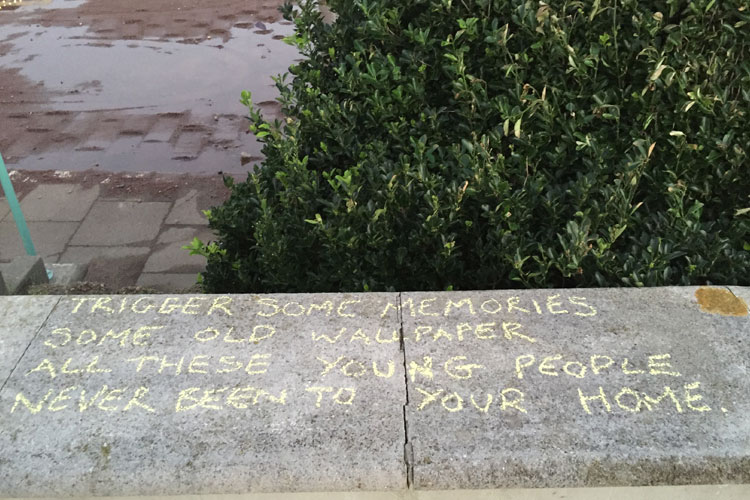 TRIGGER SOME MEMORIES
SOME OLD WALLPAPER
ALL THESE YOUNG PEOPLE
NEVER BEEN TO YOUR HOME.